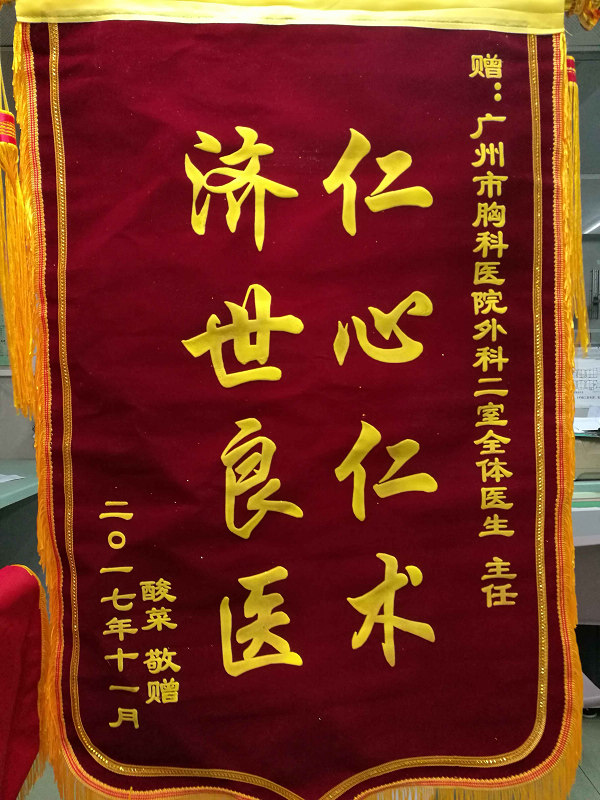 赠：广州市胸科医院外科二室全体医生 主任
仁心仁术
济世良医
酸菜 敬赠
二〇一七年十一月